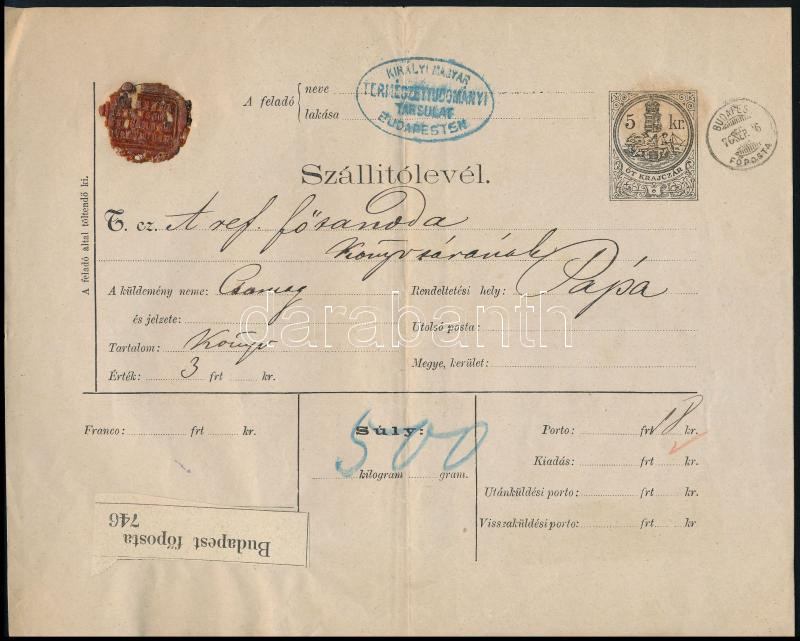 KIRÁLYI MAGYAR
TERMÉSZETTUDOMÁNYI
TÁRSULAT
BUDAPESTEN
A feladó { neve
lakása
5 kr.
ÖT KRAJCZÁR
BUDAPEST
FŐPOSTA
Szállitólevél.
A feladó által töltendő ki.
T. cz. A ref. főtanoda
Könyvtárának
A küldemény neme: Csomag
Rendeltetési hely: Pápa
és jelzete:
Utolsó posta:
Tartalom: Könyv
Megye, kerület:
Érték: 3 frt kr.
Franco: frt kr.
Súly:
500
kilogram gram.
Porto: frt 18 kr.
Kiadás: frt kr.
Utánküldési porto: frt kr.
Visszaküldési porto: frt kr
Budapest főposta
746
darabanth